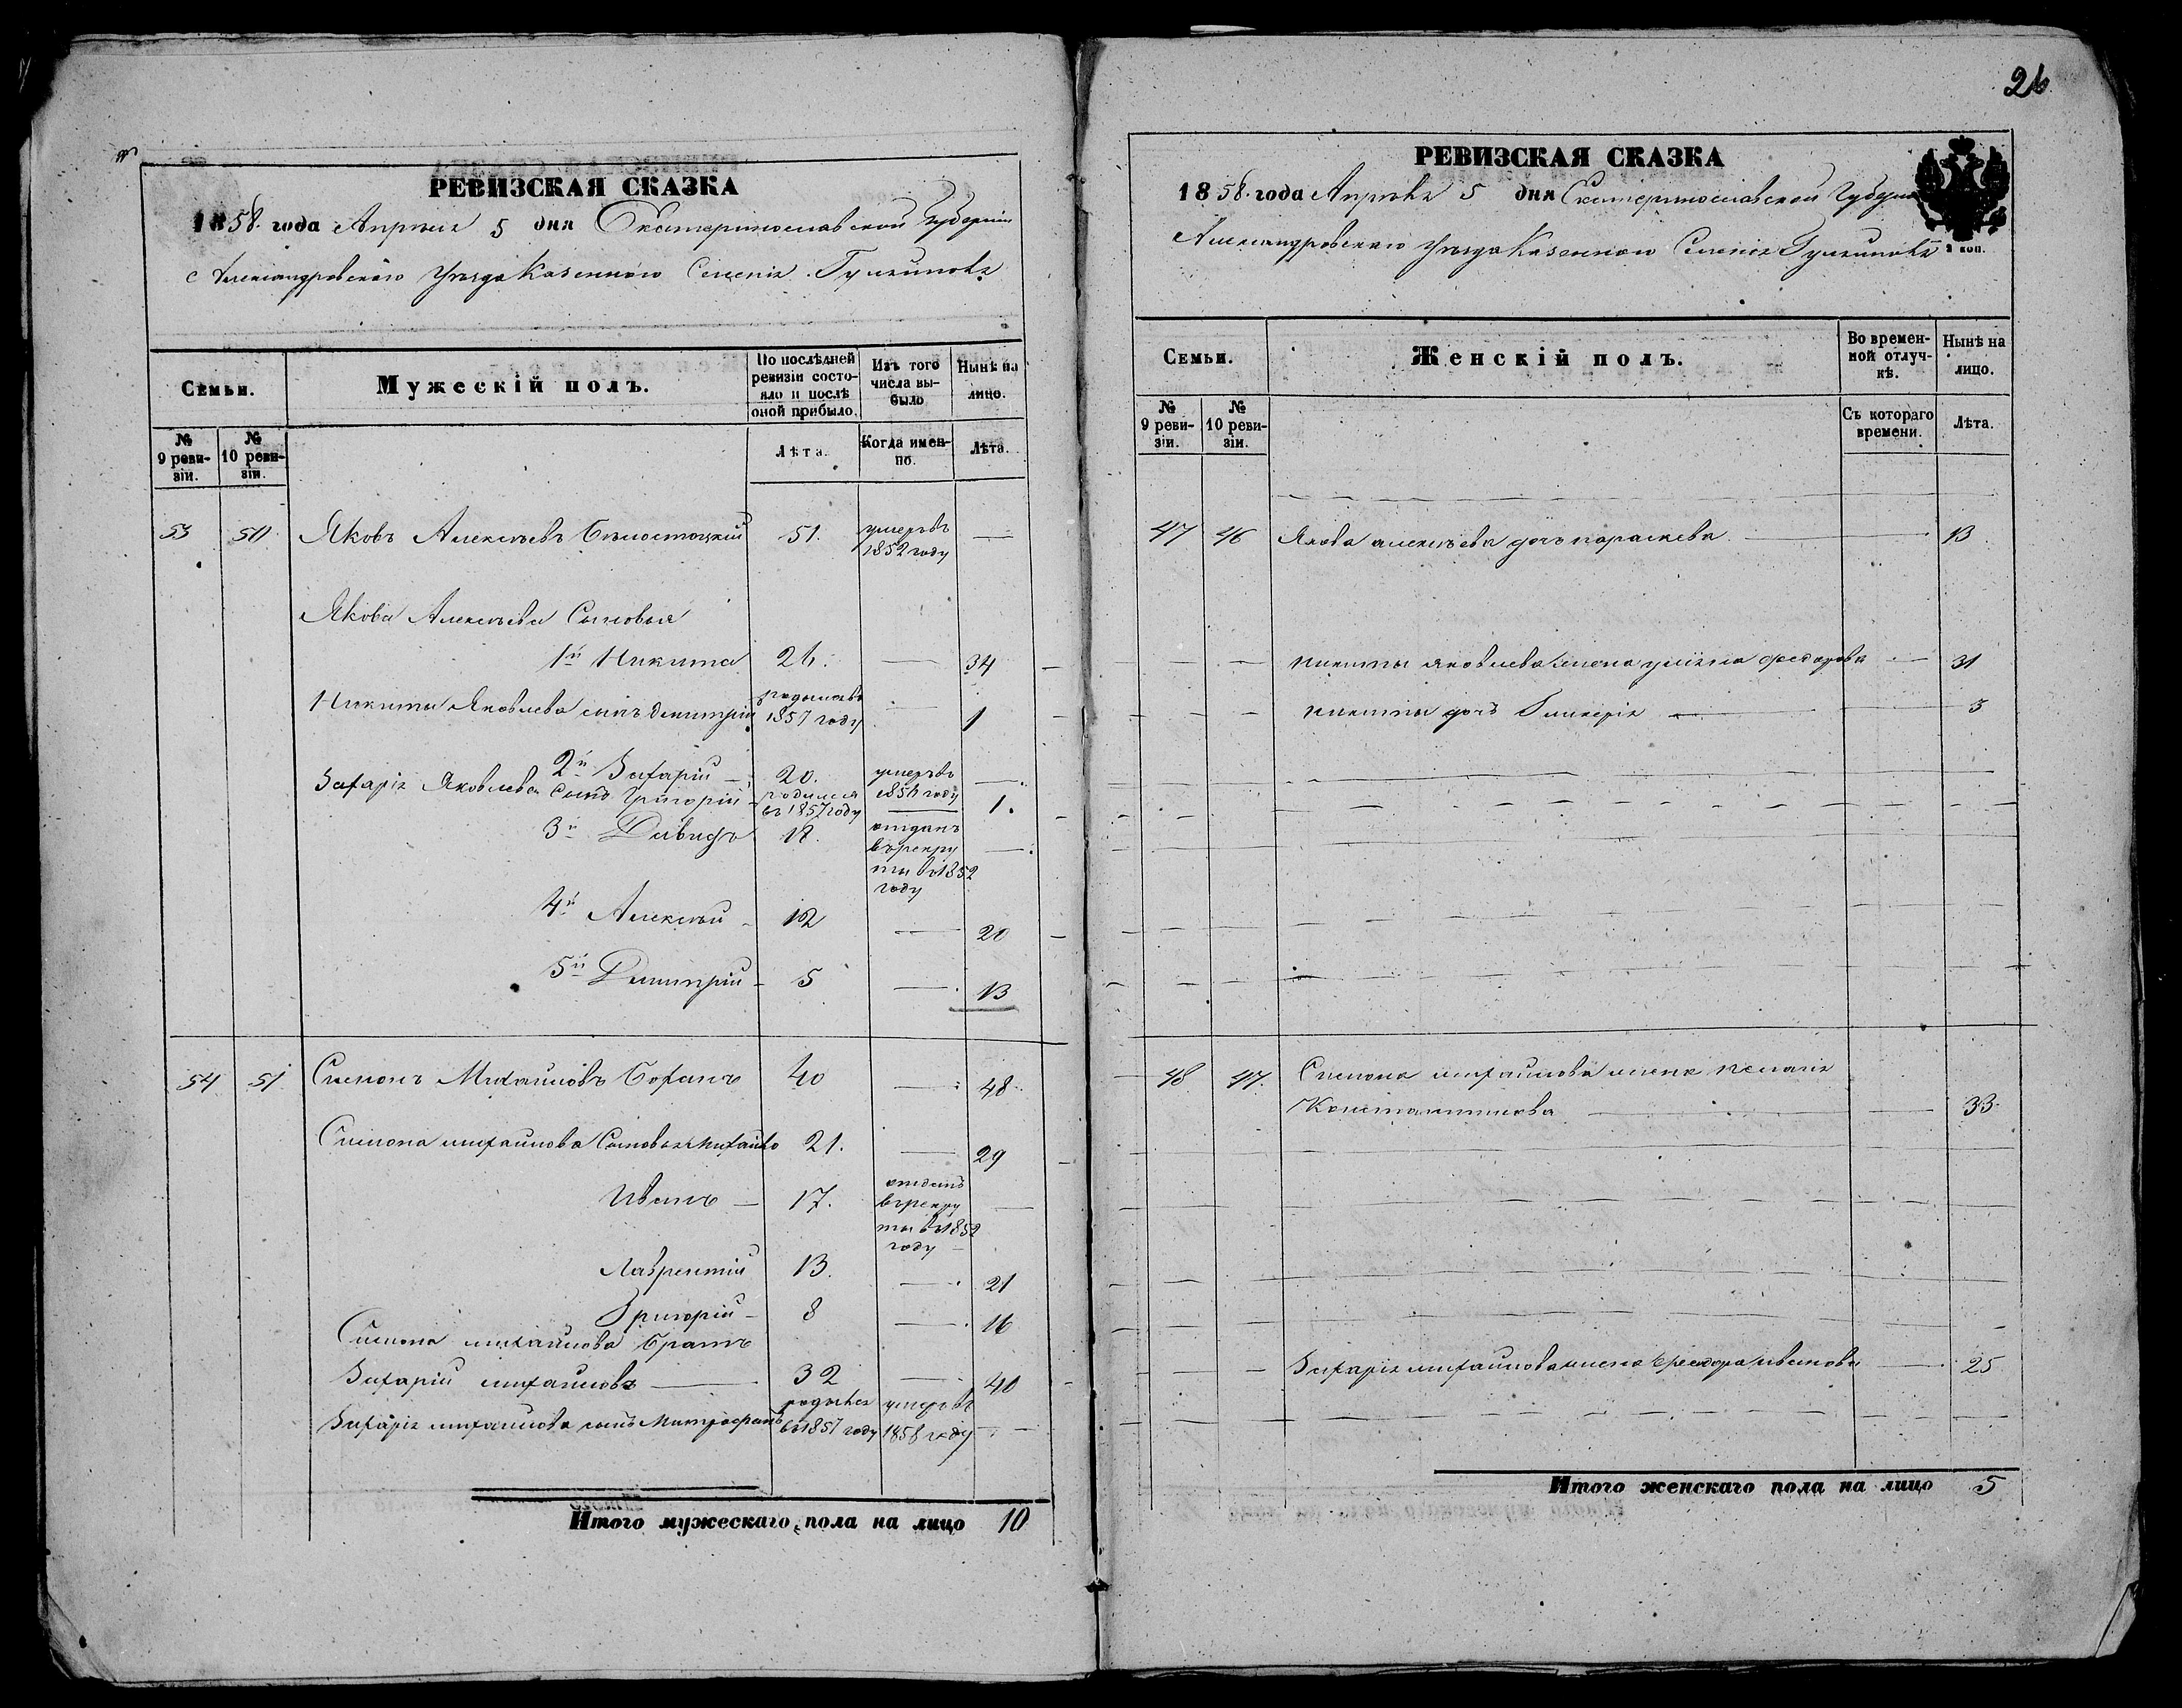 РЕВИЗСКАЯ СКАЗКА
1858. года Апрѣля 5 дня Екатеринославской Губерніи
Александровскаго Уѣзда Казеннаго Селенія
Семьи.
Мужескій полъ.
По послѣдней ревизіи состояло и послѣ оной прибыло.
Изъ того числа выбыло
Нынѣ на лицо.
№ 9 ревизіи.
№ 10 ревизіи.
Лѣта.
Когда именно.
Лѣта.
53 50 Яковъ Алексѣевъ Бѣлостоцкій 51. умеръ въ 1852 году —
Якова Алексѣева Сыновья
1й Никита 26. — 34
Никиты Яковлева сынъ Дмитрій родился въ 1857 году — 1
2й Захарій — 20. умеръ въ 1856 году —
Захарія Яковлева Сынъ Григорій родился въ 1857 году — 1.
3й Давидъ 17. отданъ въ рекруты въ 1852 году —
4й Алексѣй 12 — 20
5й Дмитрій 5 — 13
54 51 Симонъ Михайловъ Боханъ 40 — 48
Симона михайлова Сыновья Михайло 21. — 29
Иванъ — 17. отданъ въ рекруты въ 1852 году —
Лаврентій 13. — 21
Григорій 8 — 16
Симона михайлова братъ
Захарій михайловъ — 32 — 40
Захарія михайлова сынъ Митрофанъ родился въ 1851 году умеръ въ 1858 году —
Итого мужескаго пола на лицо 10
26
РЕВИЗСКАЯ СКАЗКА
1858. года Апрѣля 5 дня Екатеринославской Губерніи
Александровскаго Уѣзда Казеннаго Селенія
2 коп.
Семьи.
Женскій полъ.
Во временной отлучкѣ.
Нынѣ на лицо.
№ 9 ревизіи.
№ 10 ревизіи.
Съ котораго времени.
Лѣта.
47 46 Якова алексѣева дочь параскева — 13
— — никиты яковлева жена улiяна федорова — 31
— — никиты дочь Гликерія — 5
48 47. Симона михайлова жена пелагія
Константинова — 33
— — Захарія михайлова жена феодора иванова — 25
Итого женскаго пола на лицо 5